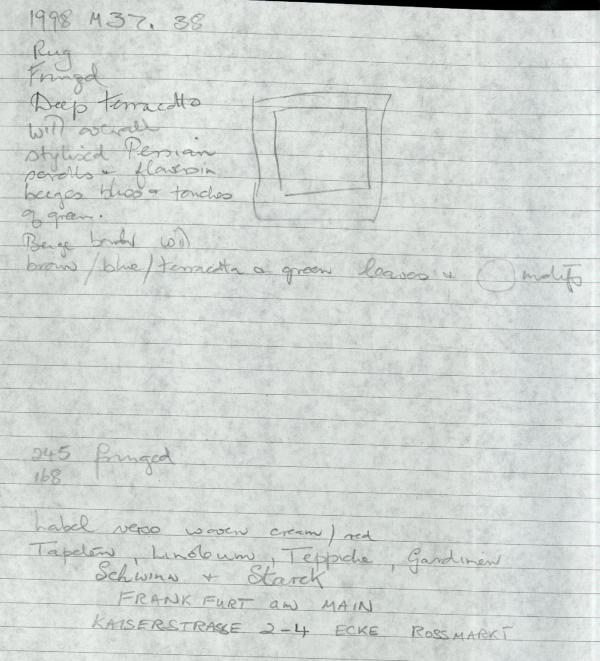 1998 M37. 38
Rug
Fringed
Deep terracotta
with overall
stylized Persian
scrolls + flowers in
beiges blues + touches
of green.
Beige border with
brown/blue/terracotta + green leaves + motifs
245 fringed
168
Label verso woven cream/red
Tapeten, Linoleum, Teppiche, Gardinen
Schwinn + Starck
FRANKFURT am MAIN
KAISERSTRASSE 2-4 ECKE ROSSMARKT